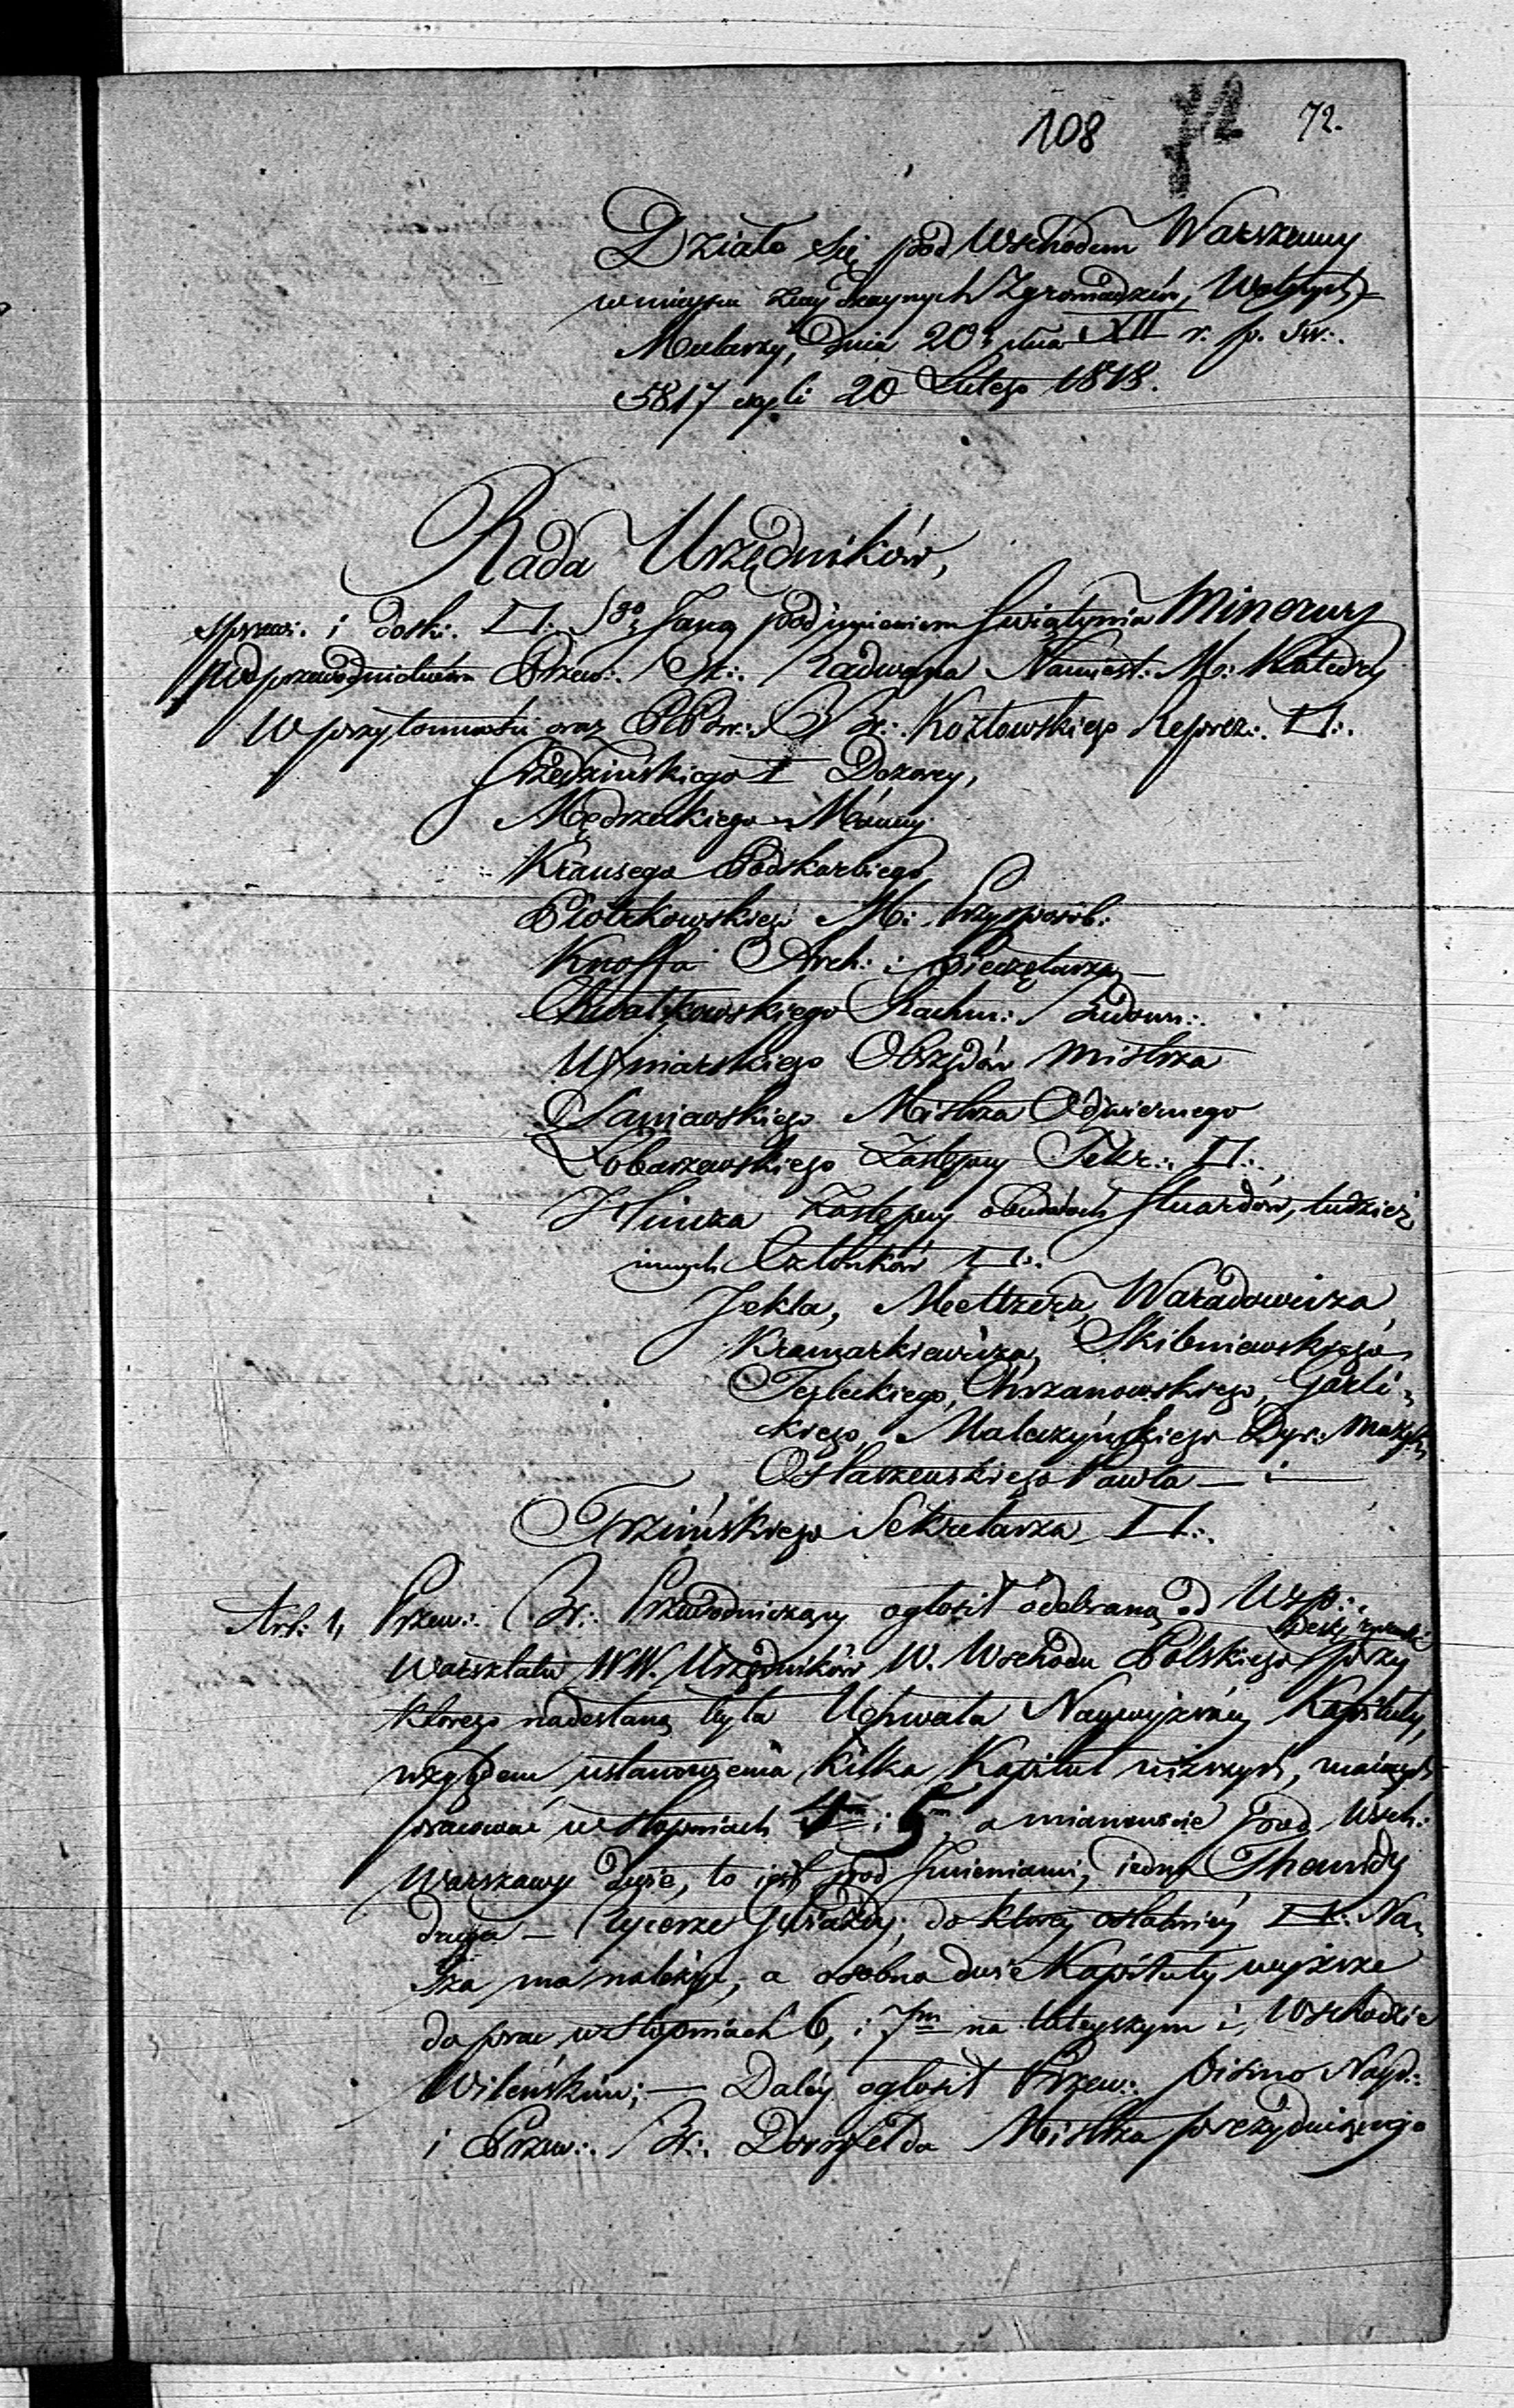 108 72.
Działo się pod Wschodem Warszawy
w mieyscu zwyczaynych Zgromadzeń, Wolnych
Mularzy, Dnia 20º dnia XII r. p. Św:.
5817 czyli 20 Lutego 1818.
Rada Urzędników,
sprawi. i dosk:. □:. Sgo Jana pod imieniem Swiątynia Minerwy
pod przewodnictwem Przew:. Br:. Radwana Namiest: M: Katedry
w przytomności oraz Br:. Kozłowskiego Reprez:. □:.
Grzędzińskiego I Dozorcy,
Mędrzeckiego Mówcy
Krausego Podskarbiego
Piotrkowskiego M: Przysposob:
Knoffa Arch: i pieczętarza —
Chwalikowskiego Rachm: Budown:.
Uzmiarskiego Obrzędów Mistrza
Saniawskiego Mistrza Odźwiernego
Lobarzewskiego Zastępcy Sekr:. □:.
Hincza Zastępcy Stuardów, tudzież
innych Członków □:.
Jekla, Meltzera, Waradowicza
Kramarkiewicza, Skibniewskiego
Terleckiego, Chrzanowskiego, Garli-
ckiego, Malczyńskiego Dyr: Muzyki
Ostaszewskiego Pawła — i —
Trzcińskiego Sekretarza □:.
Art: 1, Przew:. Br:. Przewodniczący ogłosił odebraną od Wsp:.
Warsztatu WW. Urzędników W. Wschodu Polskiego przy
którego nadesłaną była Uchwała Naywyższey Kapituły,
względem ustanowienia kilka Kapituł niższych, maiących
pracować w stopniach 4m i 5m a mianowicie pod Wsch:
Warszawy dwie, to iest pod Imieniami, iedna Themidy
druga — Rycerze Gwiazdy; do którey ostatniey □: Na-
sza ma należyć, a osobno dwie Kapituły wyższe
do prac w stopniach 6, i 7m na tuteyszym i Wschodzie
Wileńskim; — Daléy ogłosił Przew:. pismo Nayd:.
i Przew:. Br:. Dorngelda Mistrza prezyduiącego